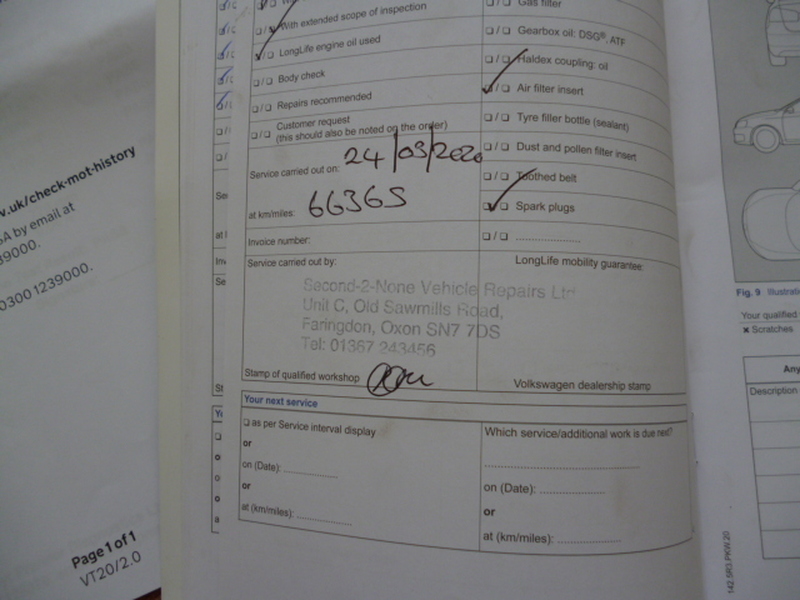 With extended scope of inspection
LongLife engine oil used
Body check
Repairs recommended
Customer request
(this should also be noted on the order)
Service carried out on: 24/03/2020
at km/miles: 66365
Invoice number:
Service carried out by:
Second-2-None Vehicle Repairs Ltd
Unit C, Old Sawmills Road,
Faringdon, Oxon SN7 7DS
Tel: 01367 243456
Stamp of qualified workshop
Gas filter
Gearbox oil: DSG®, ATF
Haldex coupling: oil
Air filter insert
Tyre filler bottle (sealant)
Dust and pollen filter insert
Toothed belt
Spark plugs
LongLife mobility guarantee:
Volkswagen dealership stamp
Your next service
as per Service interval display
or
on (Date):
or
at (km/miles):
Which service/additional work is due next?
on (Date):
or
at (km/miles):
v.uk/check-mot-history
SA by email at
39000.
0300 1239000.
Page 1 of 1
VT20/2.0
Fig. 9 Illustrati
Your qualified
x Scratches
Any
Description
142.5R3.PKW.20